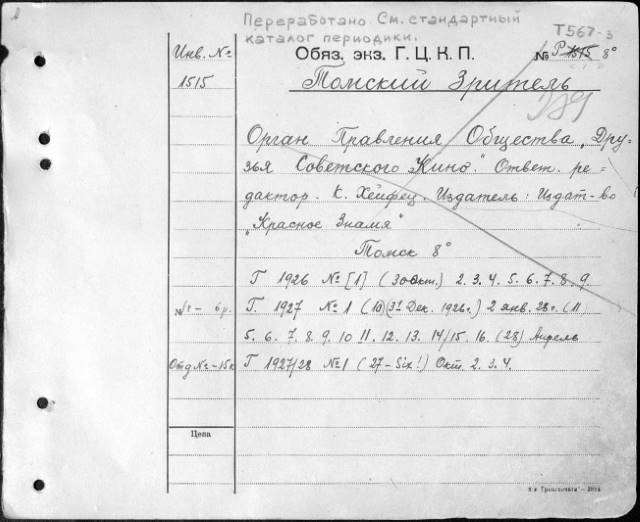 Переработано. См. стандартный
каталог периодики.
Т567-3
Инв. №
1515
Обяз. экз. Г. Ц. К. П.
№ Р 1515 8°
Томский Зритель
Орган Правления Общества „Дру-
зья Советского Кино". Ответ. ре-
дактор. К. Хейфец. Издатель: Издат-во
„Красное Знамя"
Томск 8°
Г 1926 № [1] (30 окт.) 2. 3. 4. 5. 6. 7. 8. 9.
Г. 1927 № 1 (10) (31 Дек. 1926 г.) 2 янв. 3 (11,
5. 6. 7. 8. 9. 10 11. 12. 13. 14/15. 16. (28) Апрель
Отд № - 15к
Г 1927/28 № 1 (27 - Six!) Окт. 2. 3. 4.
Цена